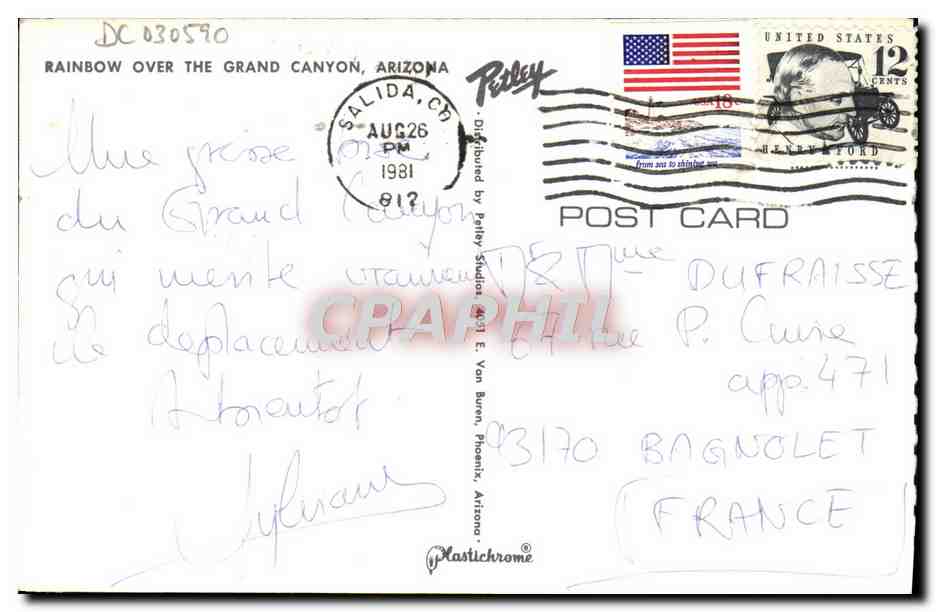 DC 030590
RAINBOW OVER THE GRAND CANYON, ARIZONA
Petley
SALIDA, CO
AUG 26
PM
1981
812
USA 18c
from sea to shining sea
UNITED STATES
12 CENTS
HENRY FORD
POST CARD
Une grosse bise
du Grand Canyon
qui mérite vraiment
le déplacement
A bientôt
Sylviane
M & Mme DUFRAISSE
67 rue P. Curie
app. 471
93170 BAGNOLET
(FRANCE)
• Distributed by Petley Studios, 4051 E. Van Buren, Phoenix, Arizona •
Plastichrome®
CPAPHIL